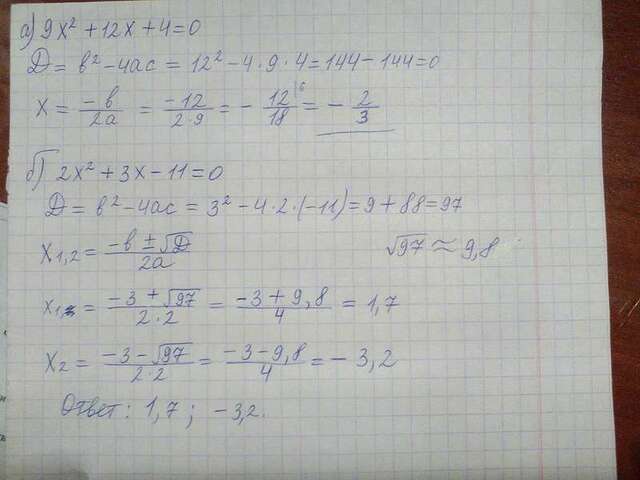 а) 9x² + 12x + 4 = 0
D = b² - 4ac = 12² - 4 · 9 · 4 = 144 - 144 = 0
x = -b/2a = -12/2·9 = - 12/18 |6 = - 2/3
б) 2x² + 3x - 11 = 0
D = b² - 4ac = 3² - 4 · 2 · (-11) = 9 + 88 = 97
x1,2 = -b ± √D/2a √97 ≈ 9,8
x1 = -3 + √97/2·2 = -3 + 9,8/4 = 1,7
x2 = -3 - √97/2·2 = -3 - 9,8/4 = - 3,2
Ответ: 1,7 ; -3,2.